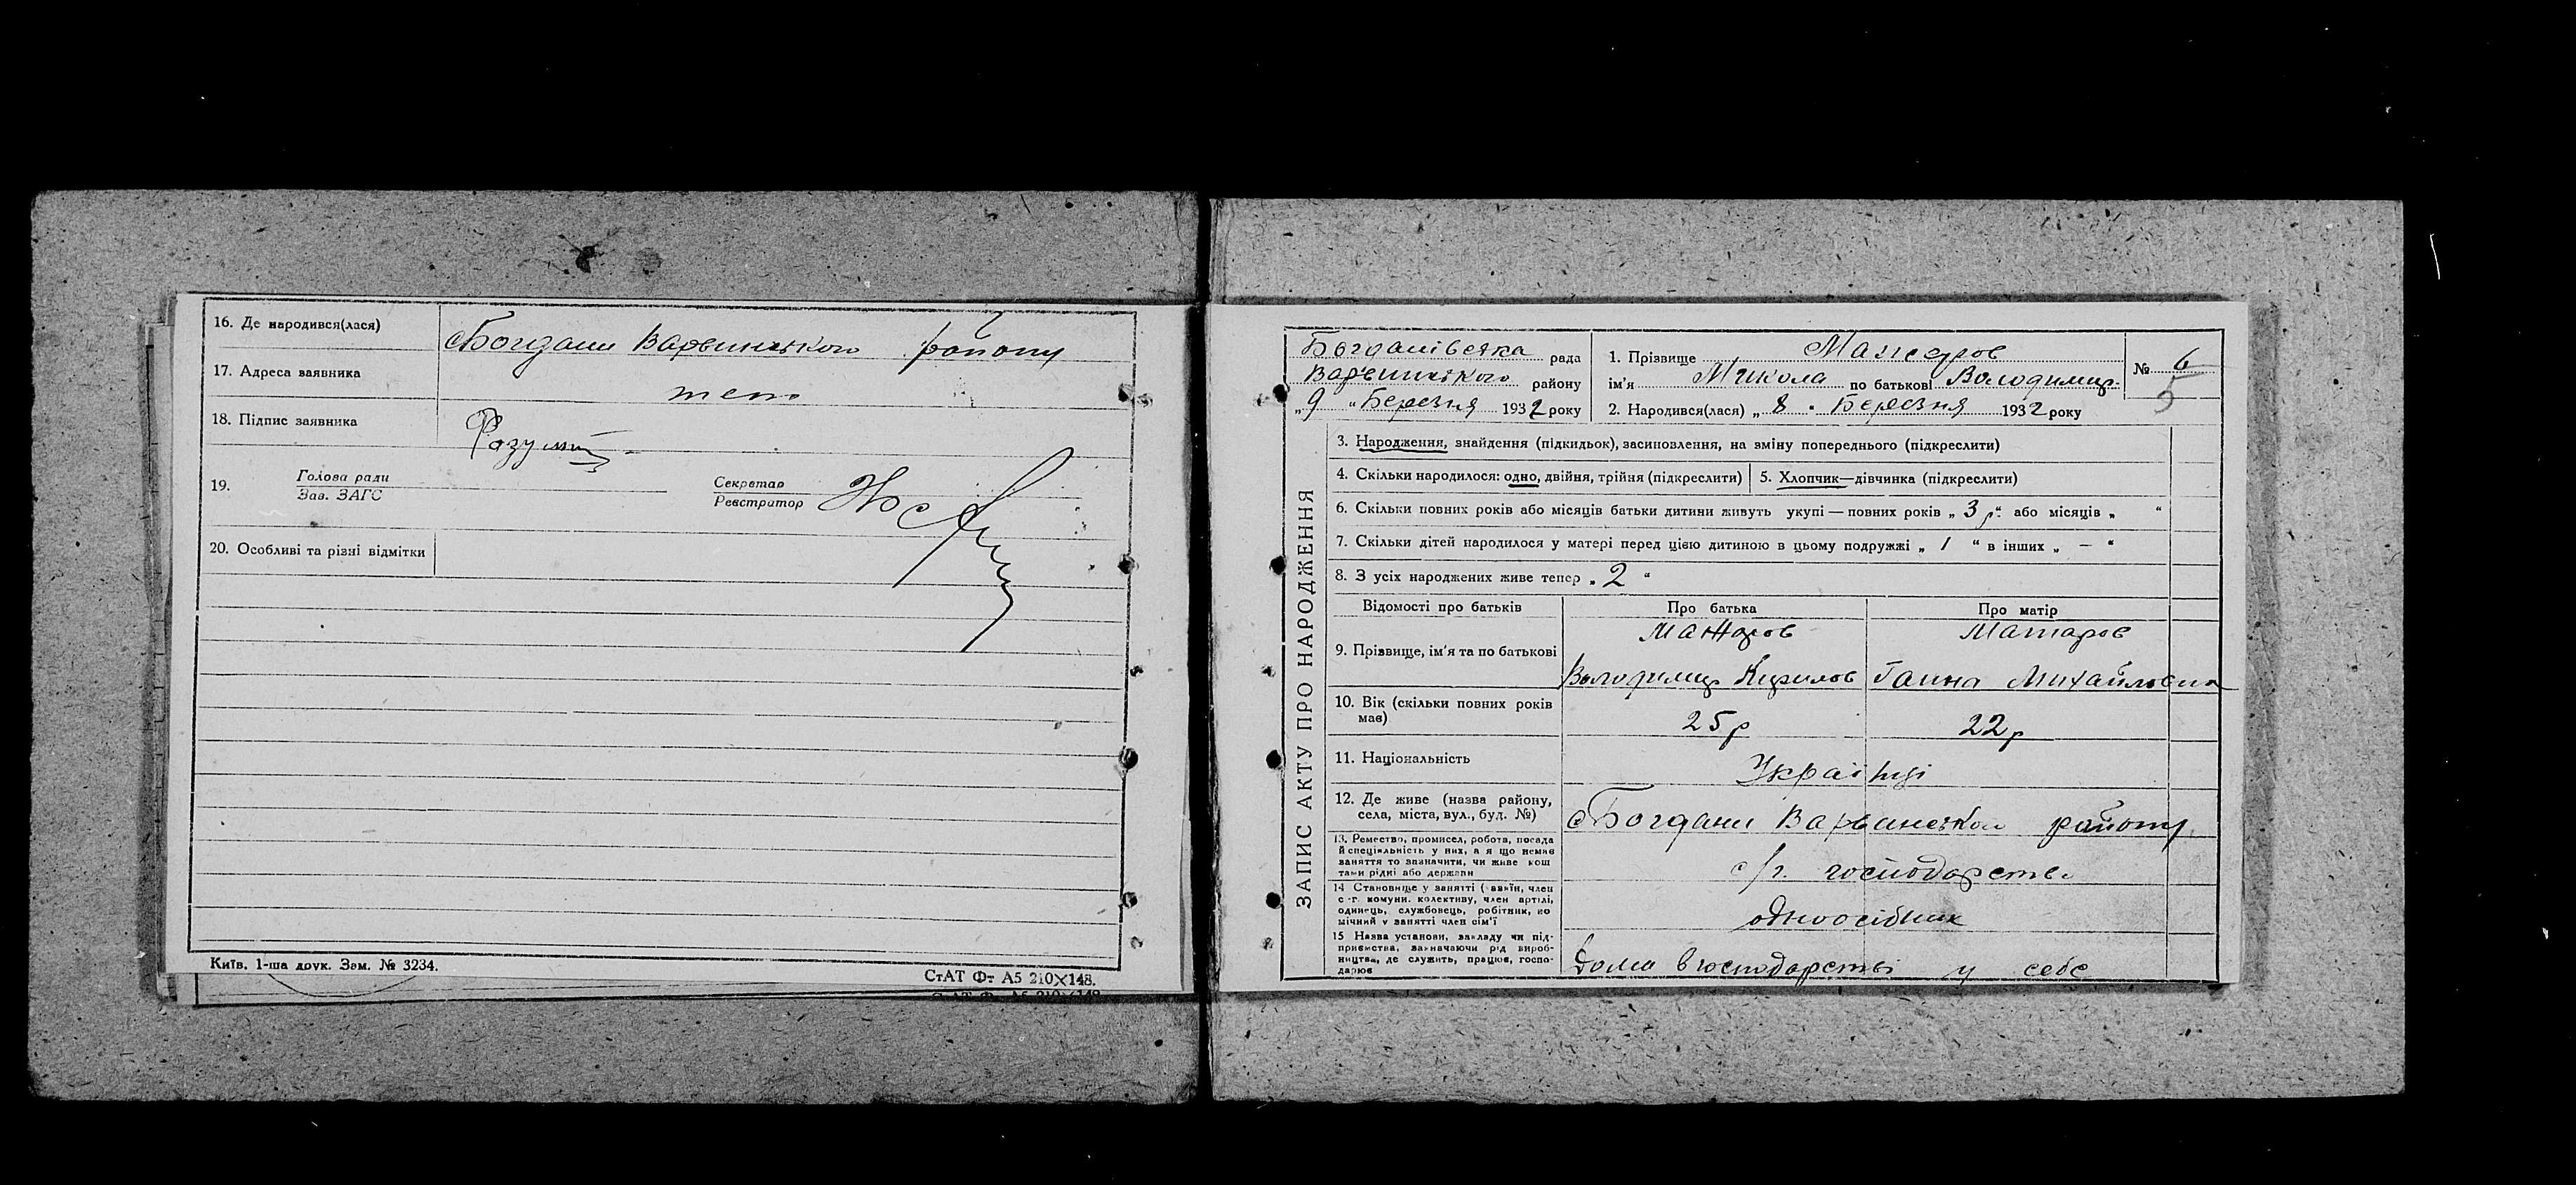 16. Де народився(лася)
с Богдани Варвинського району
17. Адреса заявника
теж
18. Підпис заявника
19. Голова ради
Зав. ЗАГС
Секретар
Реєстратор
20. Особливі та різні відмітки
Київ. 1-ша друк. Зам. № 3234.
СтАТ Ф- А5 210×148.
ЗАПИС АКТУ ПРО НАРОДЖЕННЯ
Богданівська рада
Варвинського району
„9 “ Березня 1932 року
1. Прізвище Мажаров
ім'я Микола по батькові Володимир-
2. Народився(лася) „ 8 . Березня 1932 року
№ 6
5
3. Народження, знайдення (підкидьок), засиновлення, на зміну попереднього (підкреслити)
4. Скільки народилося: одно, двійня, трійня (підкреслити)
5. Хлопчик—дівчинка (підкреслити)
6. Скільки повних років або місяців батьки дитини живуть укупі — повних років „ 3 р “ або місяців „ “
7. Скільки дітей народилося у матері перед цією дитиною в цьому подружжі „ 1 “ в інших „ — “
8. З усіх народжених живе тепер „ 2 “
Відомості про батьків
Про батька
Про матір
9. Прізвище, ім'я та по батькові
Мажаров
Володимир Кирилов
Мажаров
Ганна Михайловна
10. Вік (скільки повних років має)
25р
22р
11. Національність
Українці
12. Де живе (назва району,
села, міста, вул., буд. №)
с Богдани Варвинського району
13. Ремество, промисел, робота, посада
й спеціяльність у них, а я що немає
заняття то зазначити, чи живе кош
тами рідні або держави
с/г. господарство
14 Становище у занятті ( азяїн, член
с -г. комуни, колективу, член артілі,
одинець, службовець, робітник, по
мічний у занятті член сім'ї
одноосібник
15 Назва установи, закладу чи під-
приємства, зазначаючи рід вироб-
ництва, де служить, працює, госпо-
дарює
Дома в господарстві у себе